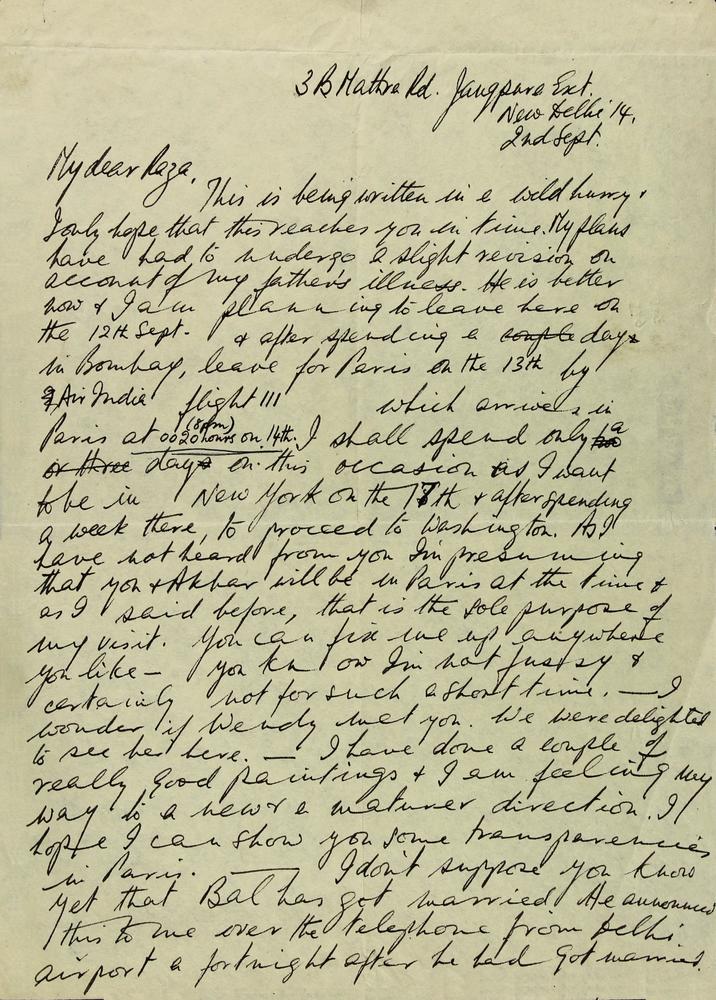 3 B Mathra Rd. Jangpura Ext.
New Delhi 14.
2nd Sept.
My dear Raza,
This is being written in a wild hurry &
I only hope that this reaches you in time. My plans
have had to undergo a slight revision on
account of my father's illness. He is better
now & I am planning to leave here on
the 12th Sept. & after spending a couple days
in Bombay, leave for Paris on the 13th by
Air India flight 111 which arrives in
Paris at 0020 hours on 14th. I shall spend only a
or three days on this occasion as I want
to be in New York on the 17th & after spending
a week there, to proceed to Washington. As I
have not heard from you I'm presuming
that you & Akbar will be in Paris at the time &
as I said before, that is the sole purpose of
my visit. You can fix me up anywhere
you like — you know I'm not fussy &
certainly not for such a short time. — I
wonder if Wendy met you. We were delighted
to see her here. — I have done a couple of
really good paintings & I am feeling my
way to a new & a maturer direction. I
hope I can show you some transparencies
in Paris. — I don't suppose you know
yet that Bal has got married. He announced
this to me over the telephone from Delhi
airport a fortnight after he had got married.